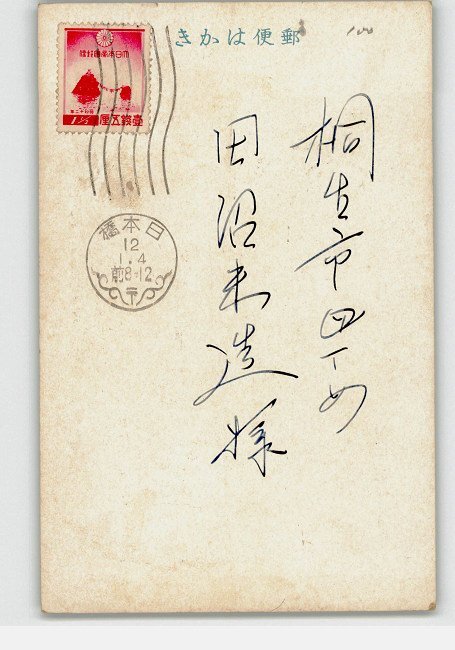 郵便はかき
100
桐生市四丁目
田沼末造様
大日本帝国郵便
壹錢五厘
1½
日本橋
12
1.4
前8-12